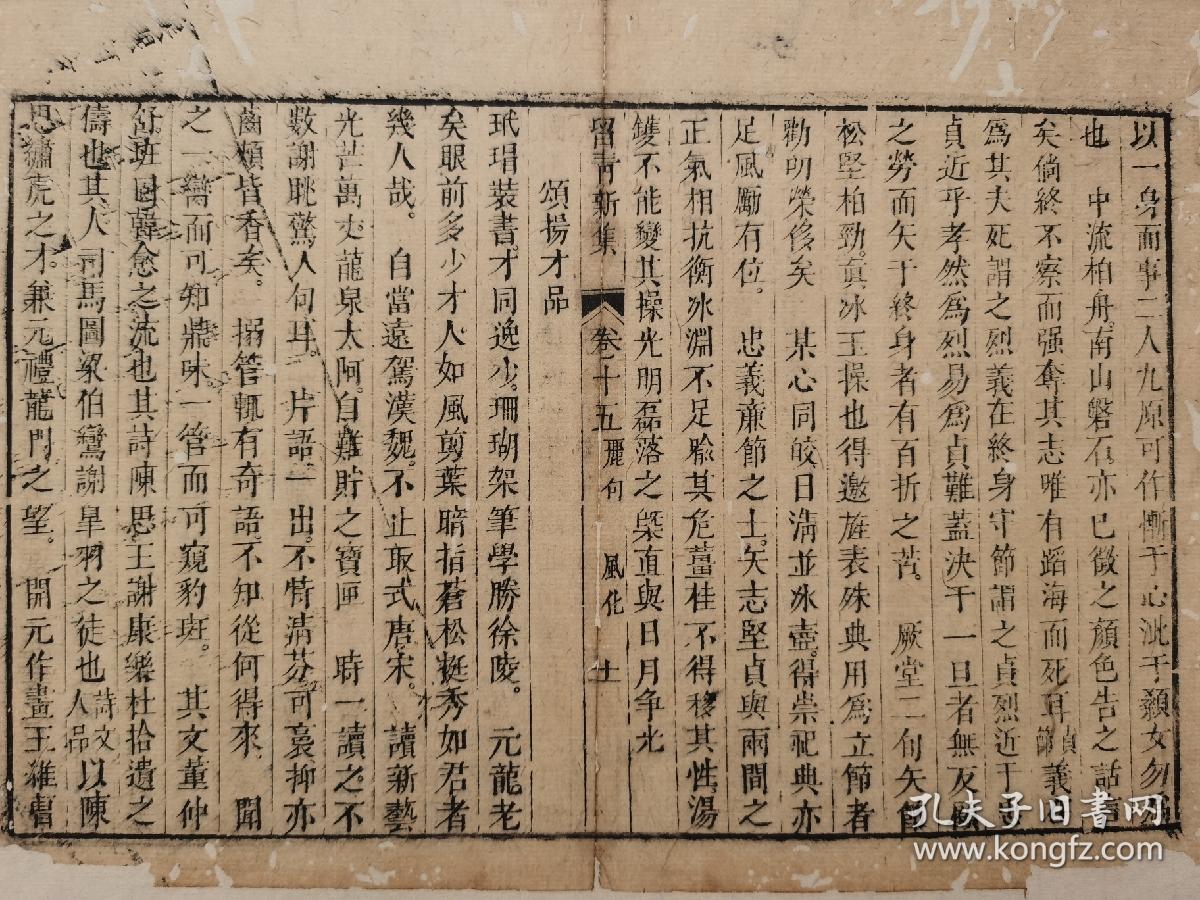 以一身而事二人九原可作慚于心泚于顙女勿
也　中流柏舟。南山磐石。亦已徵之顏色告之話言
矣倘終不察而强奪其志唯有蹈海而死耳貞節義
爲其夫死謂之烈義在終身守節謂之貞烈近于
貞近乎孝然爲烈易爲貞難蓋決于一旦者無反顧
之勞而矢于終身者有百折之苦。　厥堂二句矢節
松堅柏勁。眞冰玉操也得邀旌表殊典用爲立節者
勸明榮侈矣　某心同皎日淸並冰壺。得崇祀典亦
足風勵有位。　忠義亷節之士。矢志堅貞與兩間之
正氣相抗衡冰淵不足喩其危薑桂不得移其性。湯
鑊不能變其操光明磊落之槩直與日月争光
留青新集　卷二十五　麗句　風化　十一
頌揚才品
玳瑁裝書。才同逸少。珊瑚架筆學勝徐陵。　元龍老
矣眼前多少才人如風剪葉暗指蒼松挺秀如君者
幾人哉。　自當遠駕漢魏。不止取式唐宋。　讀新藝
光芒萬丈龍泉太阿自難貯之寶匣　時一讀之不
數謝眺驚人句耳。　片語一出。不特淸芬可裛抑亦
齒頰皆香矣。　搦管輒有奇語。不知從何得來　聞
之一臠而可知鼎味。一管而可窺豹斑。　其文董仲
舒班固韓愈之流也其詩陳思王謝康樂杜拾遺之
儔也其人司馬圖梁伯鸞謝臯羽之徒也詩文人品　以陳
思繡虎之才。兼元禮龍門之望。　開元作畫王維曹
孔夫子旧书网
www.kongfz.com